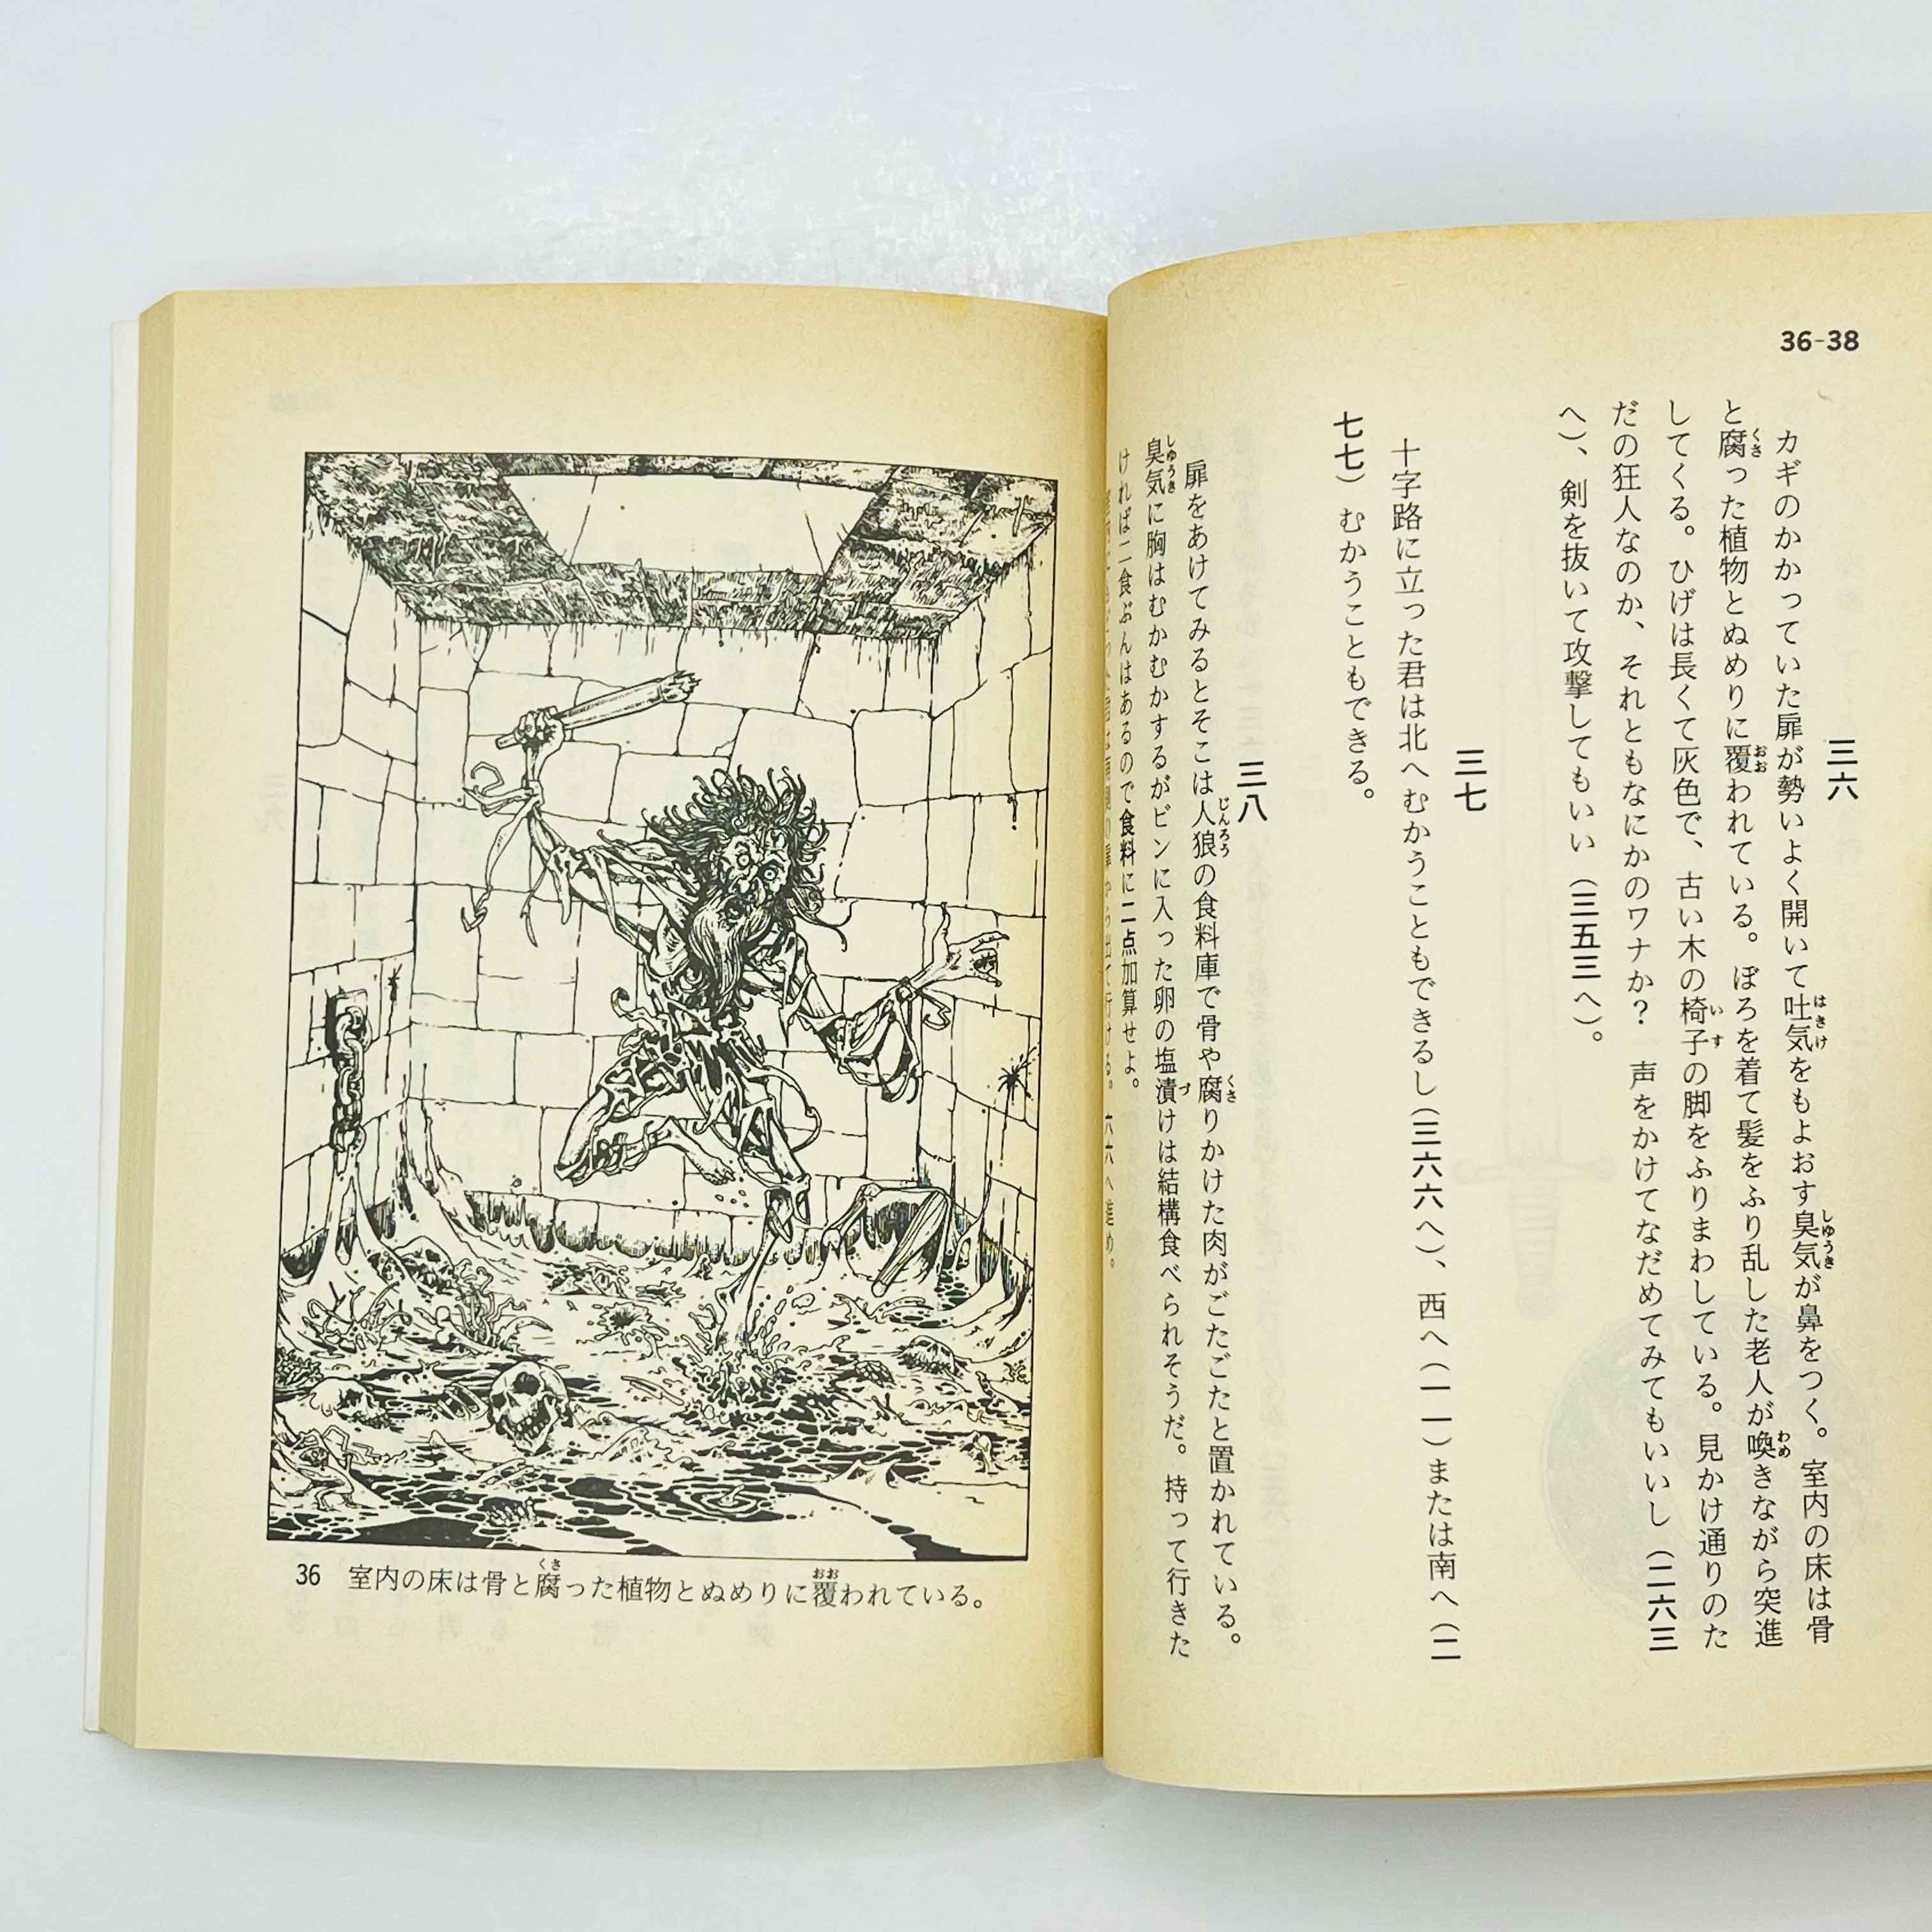 36-38
三六
カギのかかっていた扉が勢いよく開いて吐気をもよおす臭気が鼻をつく。室内の床は骨
と腐った植物とぬめりに覆われている。ぼろを着て髪をふり乱した老人が喚きながら突進
してくる。ひげは長くて灰色で、古い木の椅子の脚をふりまわしている。見かけ通りのた
だの狂人なのか、それともなにかのワナか？　声をかけてなだめてみてもいいし（二六三
へ）、剣を抜いて攻撃してもいい（三五三へ）。
三七
十字路に立った君は北へむかうこともできるし（三六六へ）、西へ（一一）または南へ（二
七七）むかうこともできる。
三八
扉をあけてみるとそこは人狼の食料庫で骨や腐りかけた肉がごたごたと置かれている。
臭気に胸はむかむかするがビンに入った卵の塩漬けは結構食べられそうだ。持って行きた
ければ二食ぶんはあるので食料に二点加算せよ。
から出て行ける。六六へ進め。
36　室内の床は骨と腐った植物とぬめりに覆われている。